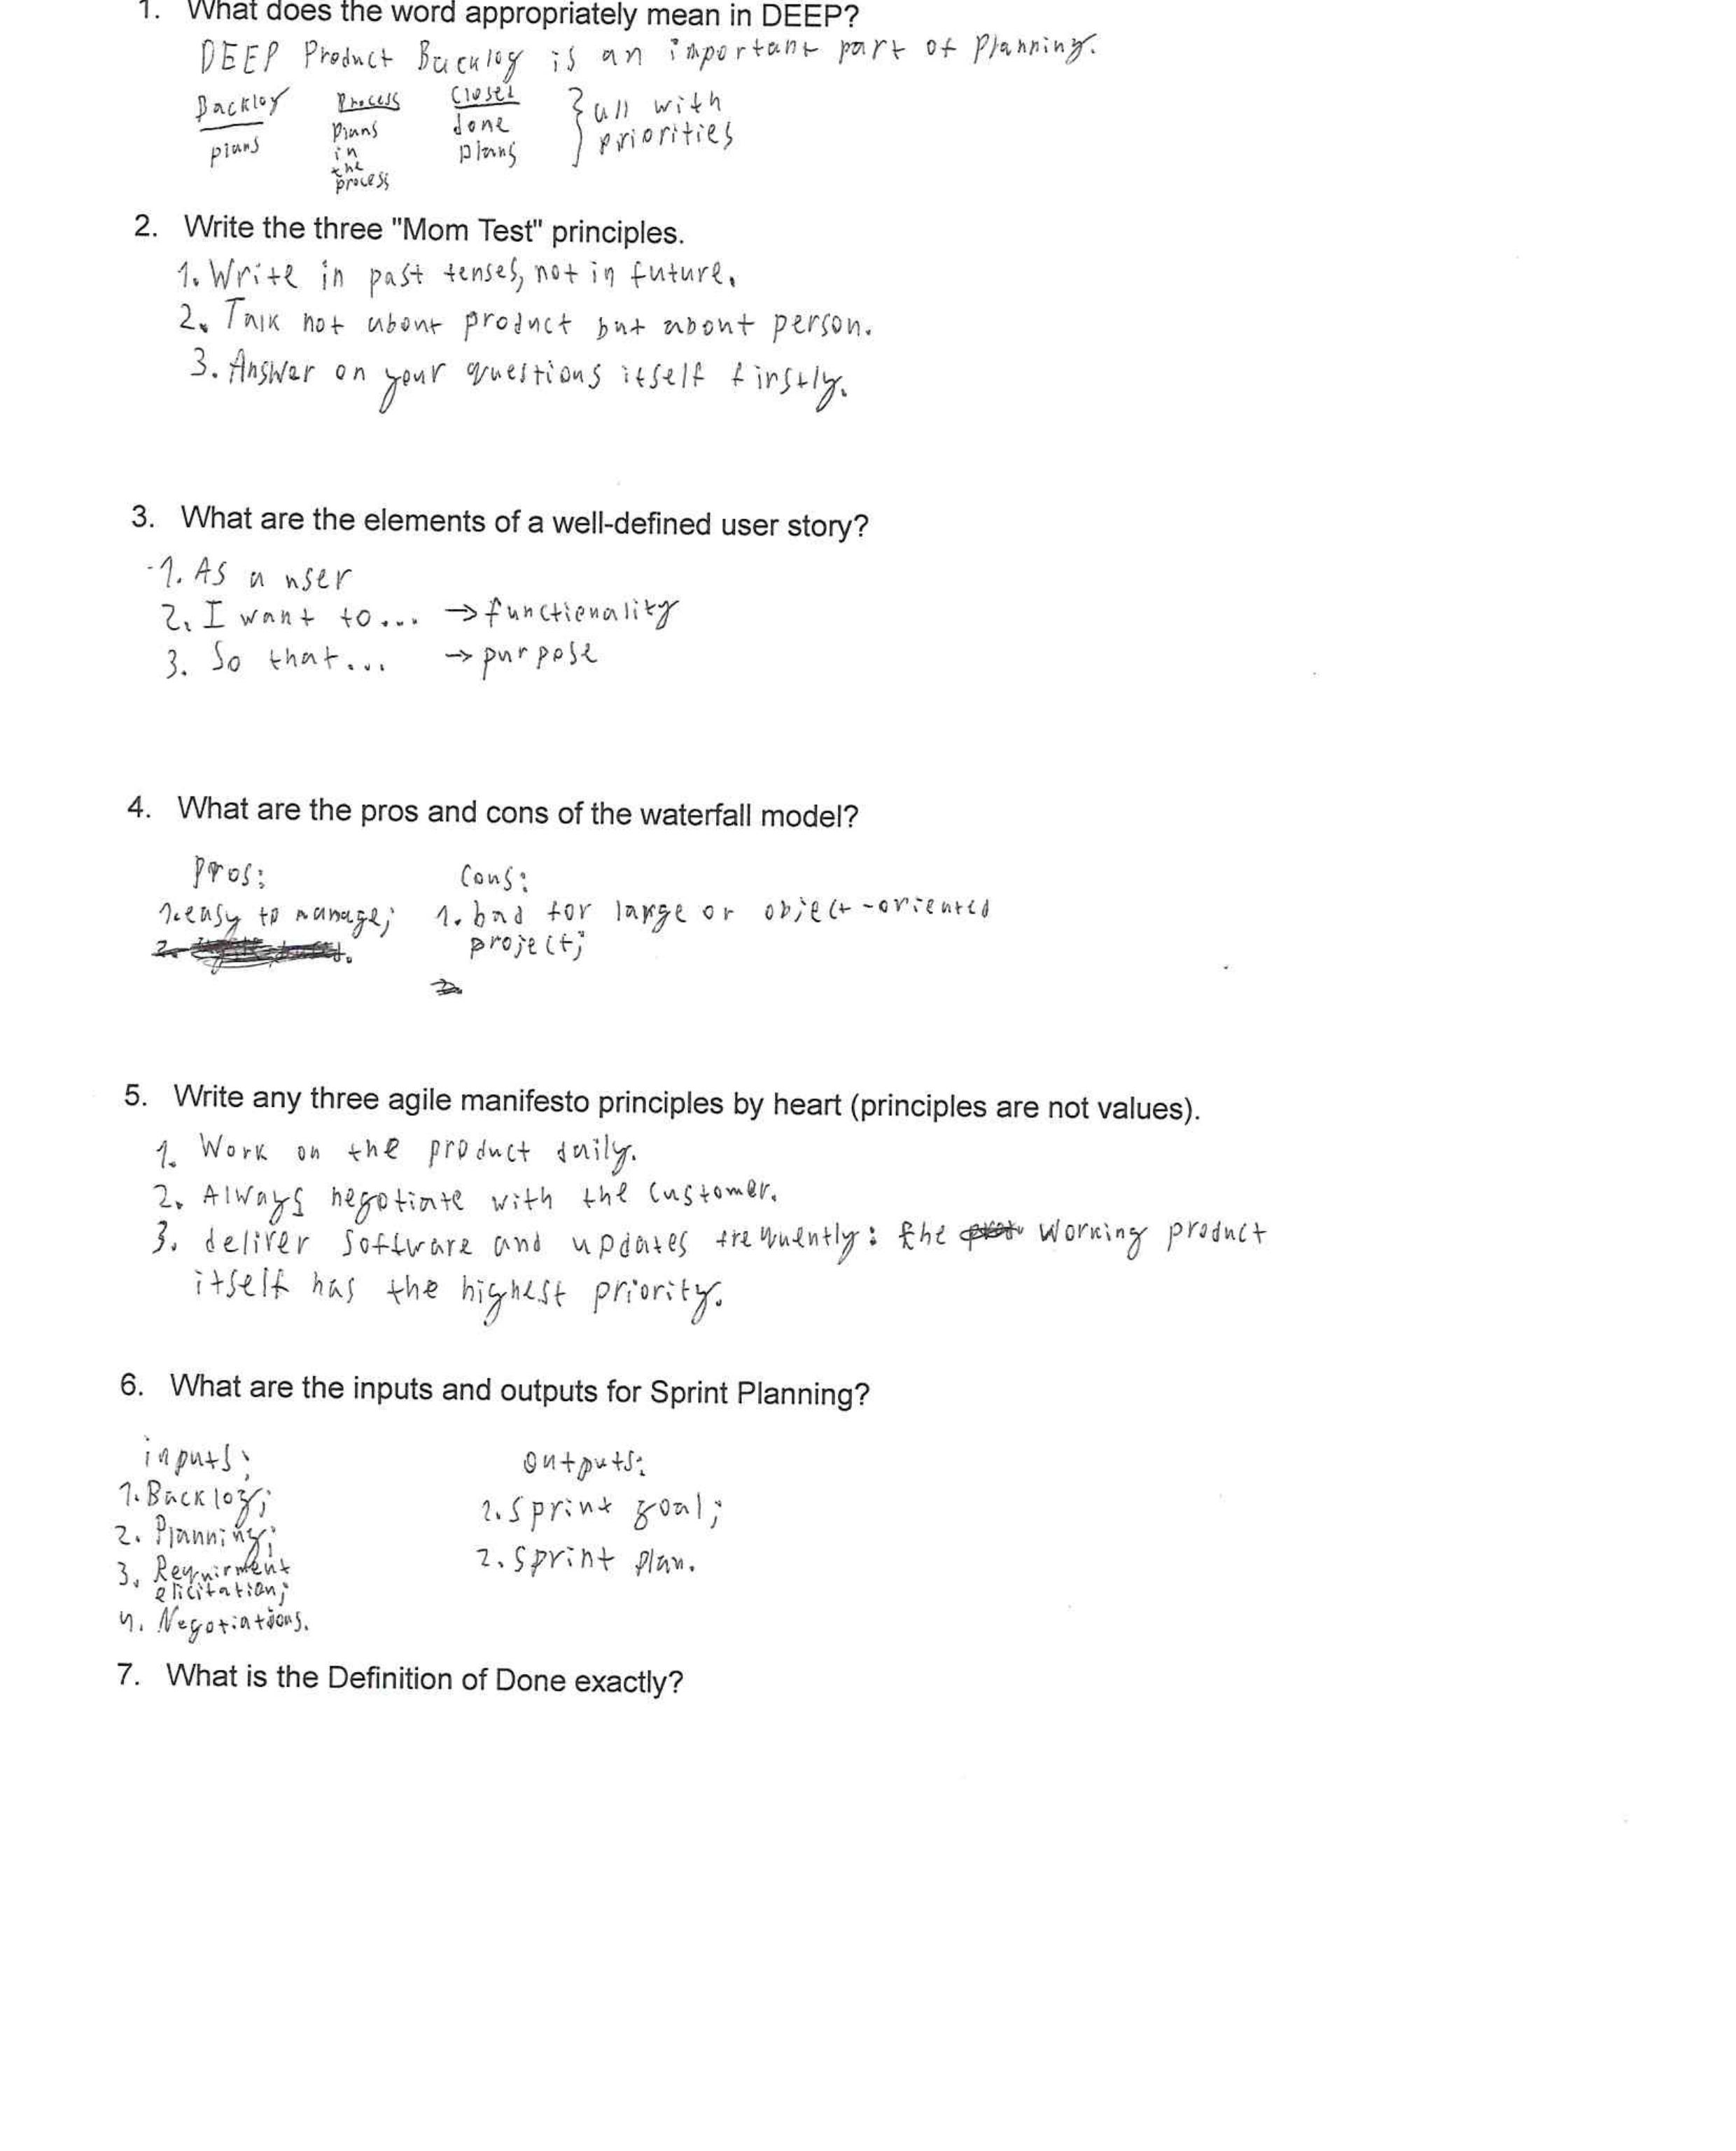 1. What does the word appropriately mean in DEEP?
DEEP Product Backlog is an important part of planning.
Backlog Process Closed } all with
plans plans done priorities
in plans
the
process
2. Write the three "Mom Test" principles.
1. Write in past tenses, not in future.
2. Talk not about product but about person.
3. Answer on your questions itself firstly.
3. What are the elements of a well-defined user story?
1. As a user
2. I want to... → functionality
3. So that... → purpose
4. What are the pros and cons of the waterfall model?
pros: Cons:
1. easy to manage; 1. bad for large or object-oriented
project;
5. Write any three agile manifesto principles by heart (principles are not values).
1. Work on the product daily.
2. Always negotiate with the customer.
3. deliver software and updates frequently: the working product
itself has the highest priority.
6. What are the inputs and outputs for Sprint Planning?
inputs: outputs:
1. Backlog; 1. Sprint goal;
2. Planning; 2. Sprint plan.
3. Requirment
elicitation;
4. Negotiations.
7. What is the Definition of Done exactly?